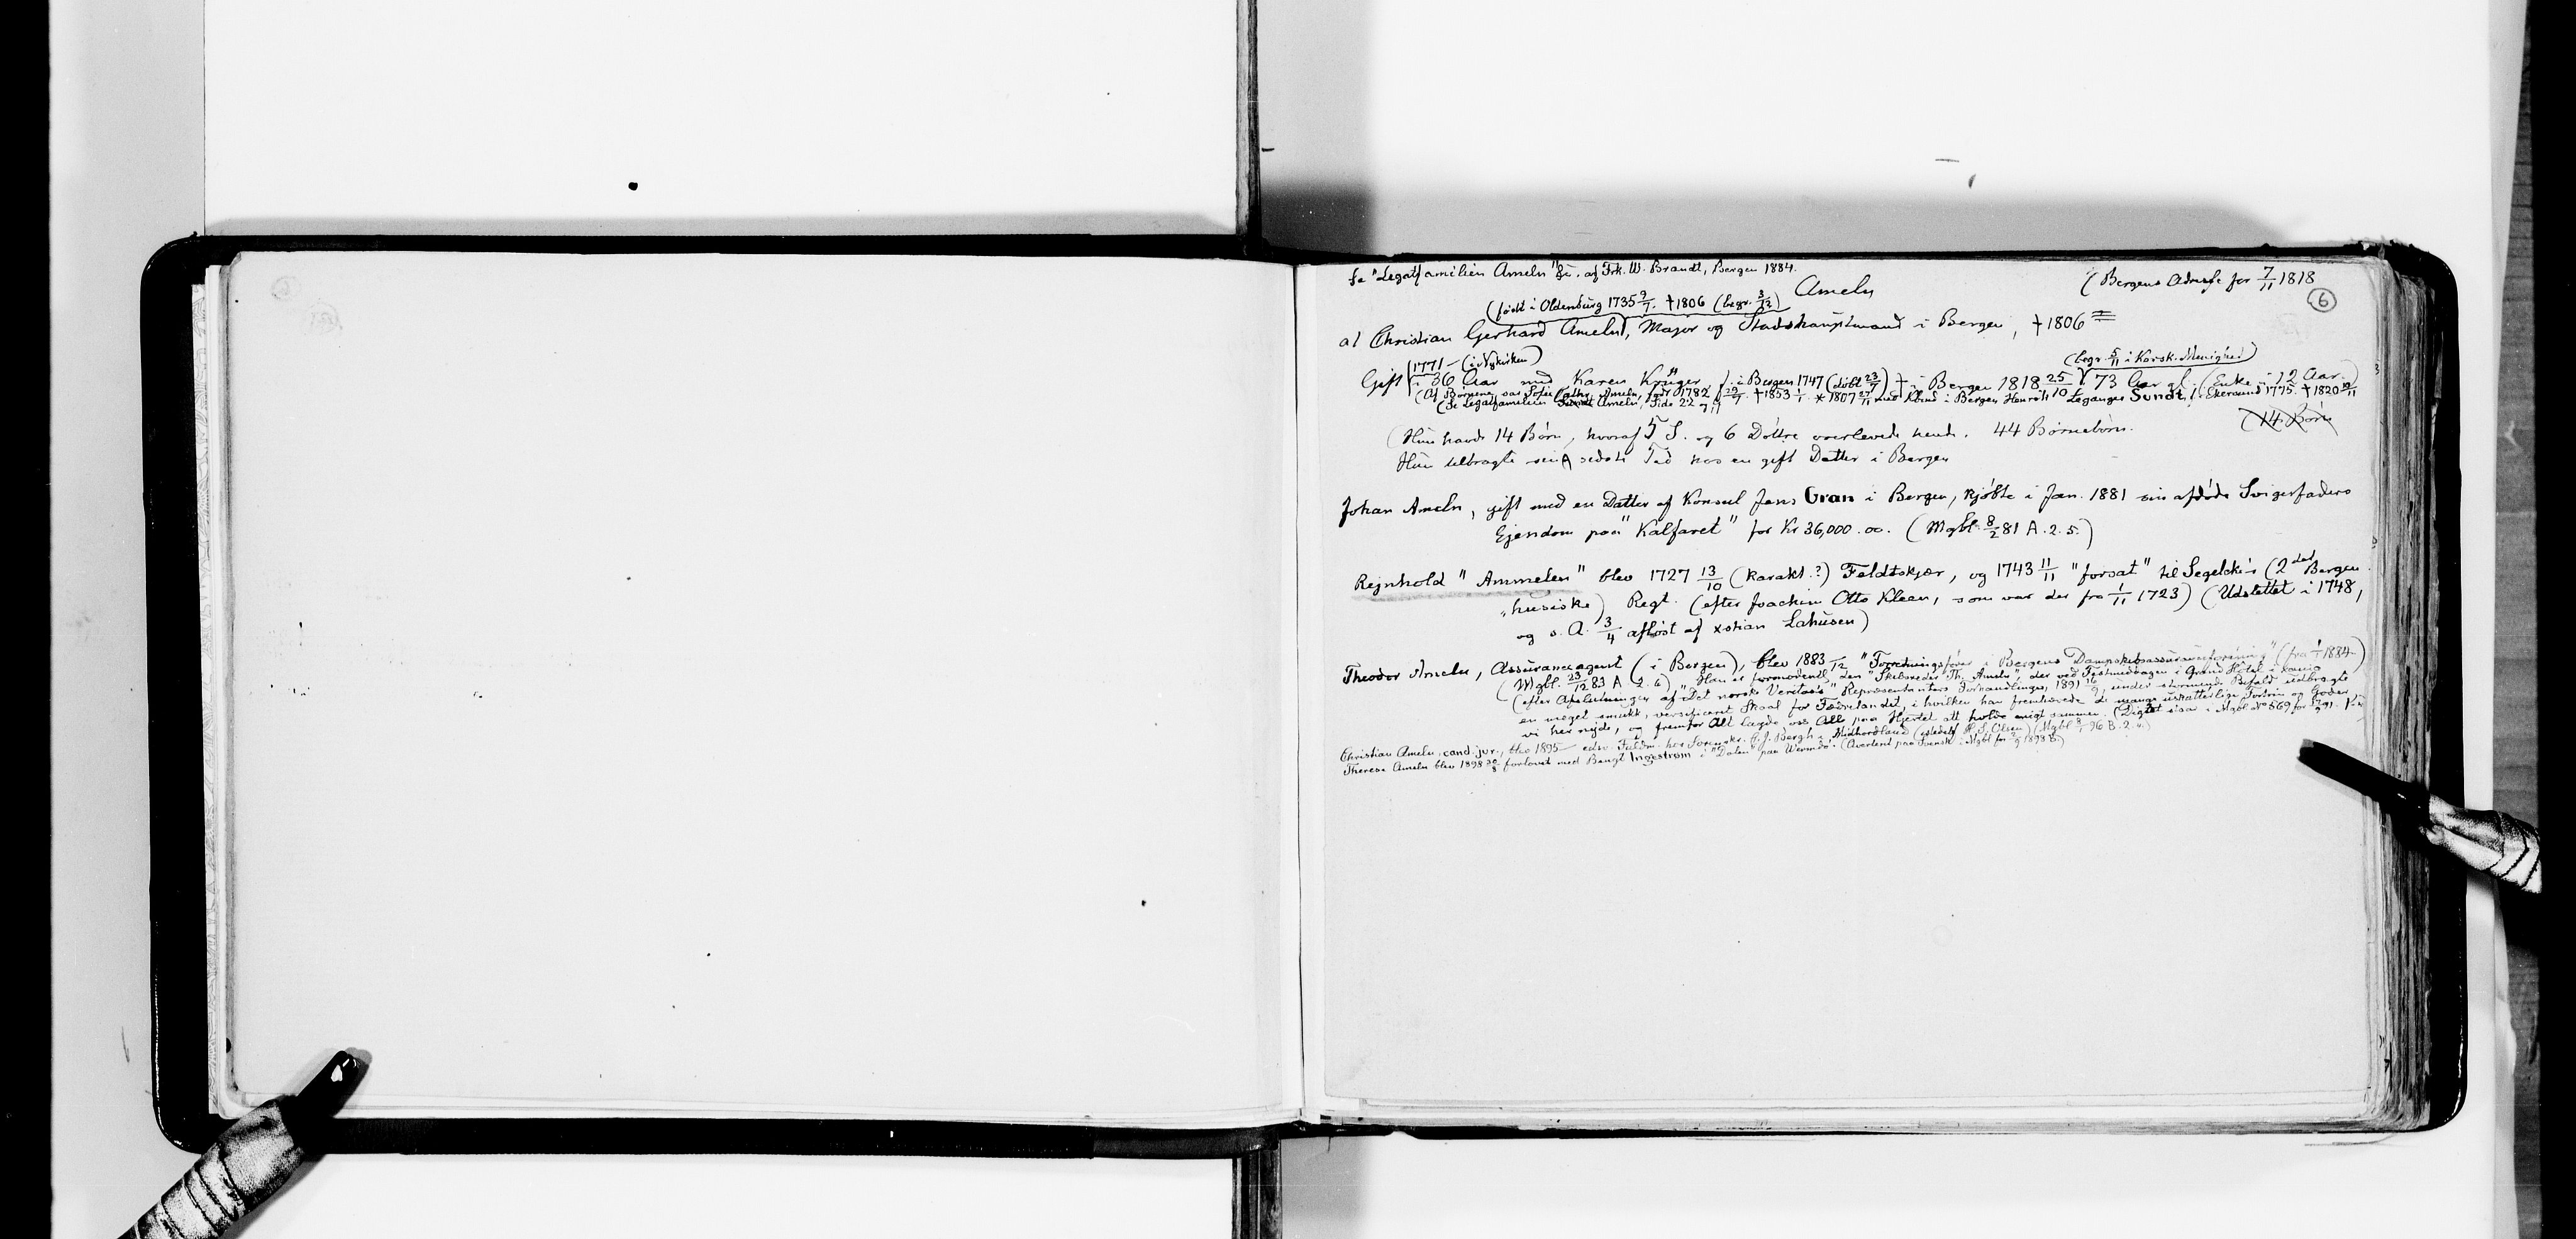 Se "Legatfamilien Ameln" af Frk. W. Brandt, Bergen 1884.
(Bergens Adresse for 7/11 1818
6
Ameln
(født i Oldenburg 1735 9/7. † 1806 (begr. 3/12)
a) Christian Gerhard Ameln, Major og Stadshauptmand i Bergen, † 1806
1771 - (i Nykirken)
(begr. 5/11 i Korsk. Menighed)
Gift i 36 Aar med Karen Krüger f. i Bergen 1747 (døbt 23/7) † i Bergen 1818 25/10 73 Aar gl. (Enke i 12 Aar.)
(Af Børnene var Sofie Cathr. Ameln, født 1782 29/7. † 1853 1/1. * 1807 27/11 med Kbmd i Bergen Henrik Leganger Sundt, f. i Ekersund 1775. † 1820
(Se Legatfamilien Ameln, Side 22
(Hun havde 14 Børn, hvoraf 5 S. og 6 Døttre overlevede hende. 44 Børnebørn.
(14 Børn
Hun tilbragte sin sidste Tid hos en gift Datter i Bergen
Johan Ameln, gift med en Datter af Konsul Jens Gran i Bergen, kjøbte i Jan. 1881 sin afdøde Svigerfaders
Ejendom paa "Kalfaret" for Kr 36,000.00. (Mgbl. 8/2 81 A. 2. 5.)
Rejnhold "Ammelen" blev 1727 13/10 (karakt.?) Feldtskjær, og 1743 11/11 "forsat" til Segelcke's (2det Bergen-
husiske) Regt. (efter Joachim Otto Kleen, som var der fra 1/11 1723) (Udslettet i 1748,
og s. A. 3/4 afløst af xstian Lahusen)
Theodor Ameln, Assuranceagent (i Bergen), blev 1883 /12 "Forretningsfører i Bergens Dampskibsassuranceforening" (fra 1/1 1884)
(Mgbl. 23/12 83 A. 2. 6) Han er formodentl. den "Skibsreder Th. Ameln", der ved Festmiddagen i Grand Hotel i Xania
(efter Afslutningen af "Det norske Veritas's" Repræsentanters Forhandlinger, 1891 under stormende Bifald udbragte
en meget smukt, versificeret Skaal for Fædrelandet, i hvilken han fremhævede de mange uskatterlige Fortrin og Goder
vi her nyde, og fremfor Alt lagde oss Alle paa Hjertet att holde enigt sammen. (Digtet staar i Mgbl No 569 for
Christian Ameln, cand. jur., blev 1895 edsv. Fuldm. hos Sorenskr. J. J. Bergh i Midhordland (istedetf. H. S. Olsen) (Mgbl. 96 B. 2.
Therese Ameln blev 1898 30/8 forlovet med Bengt Ingeström i "Dalen" paa Wermdö. (Averteret paa Svensk i Mgbl for 1898 B.)